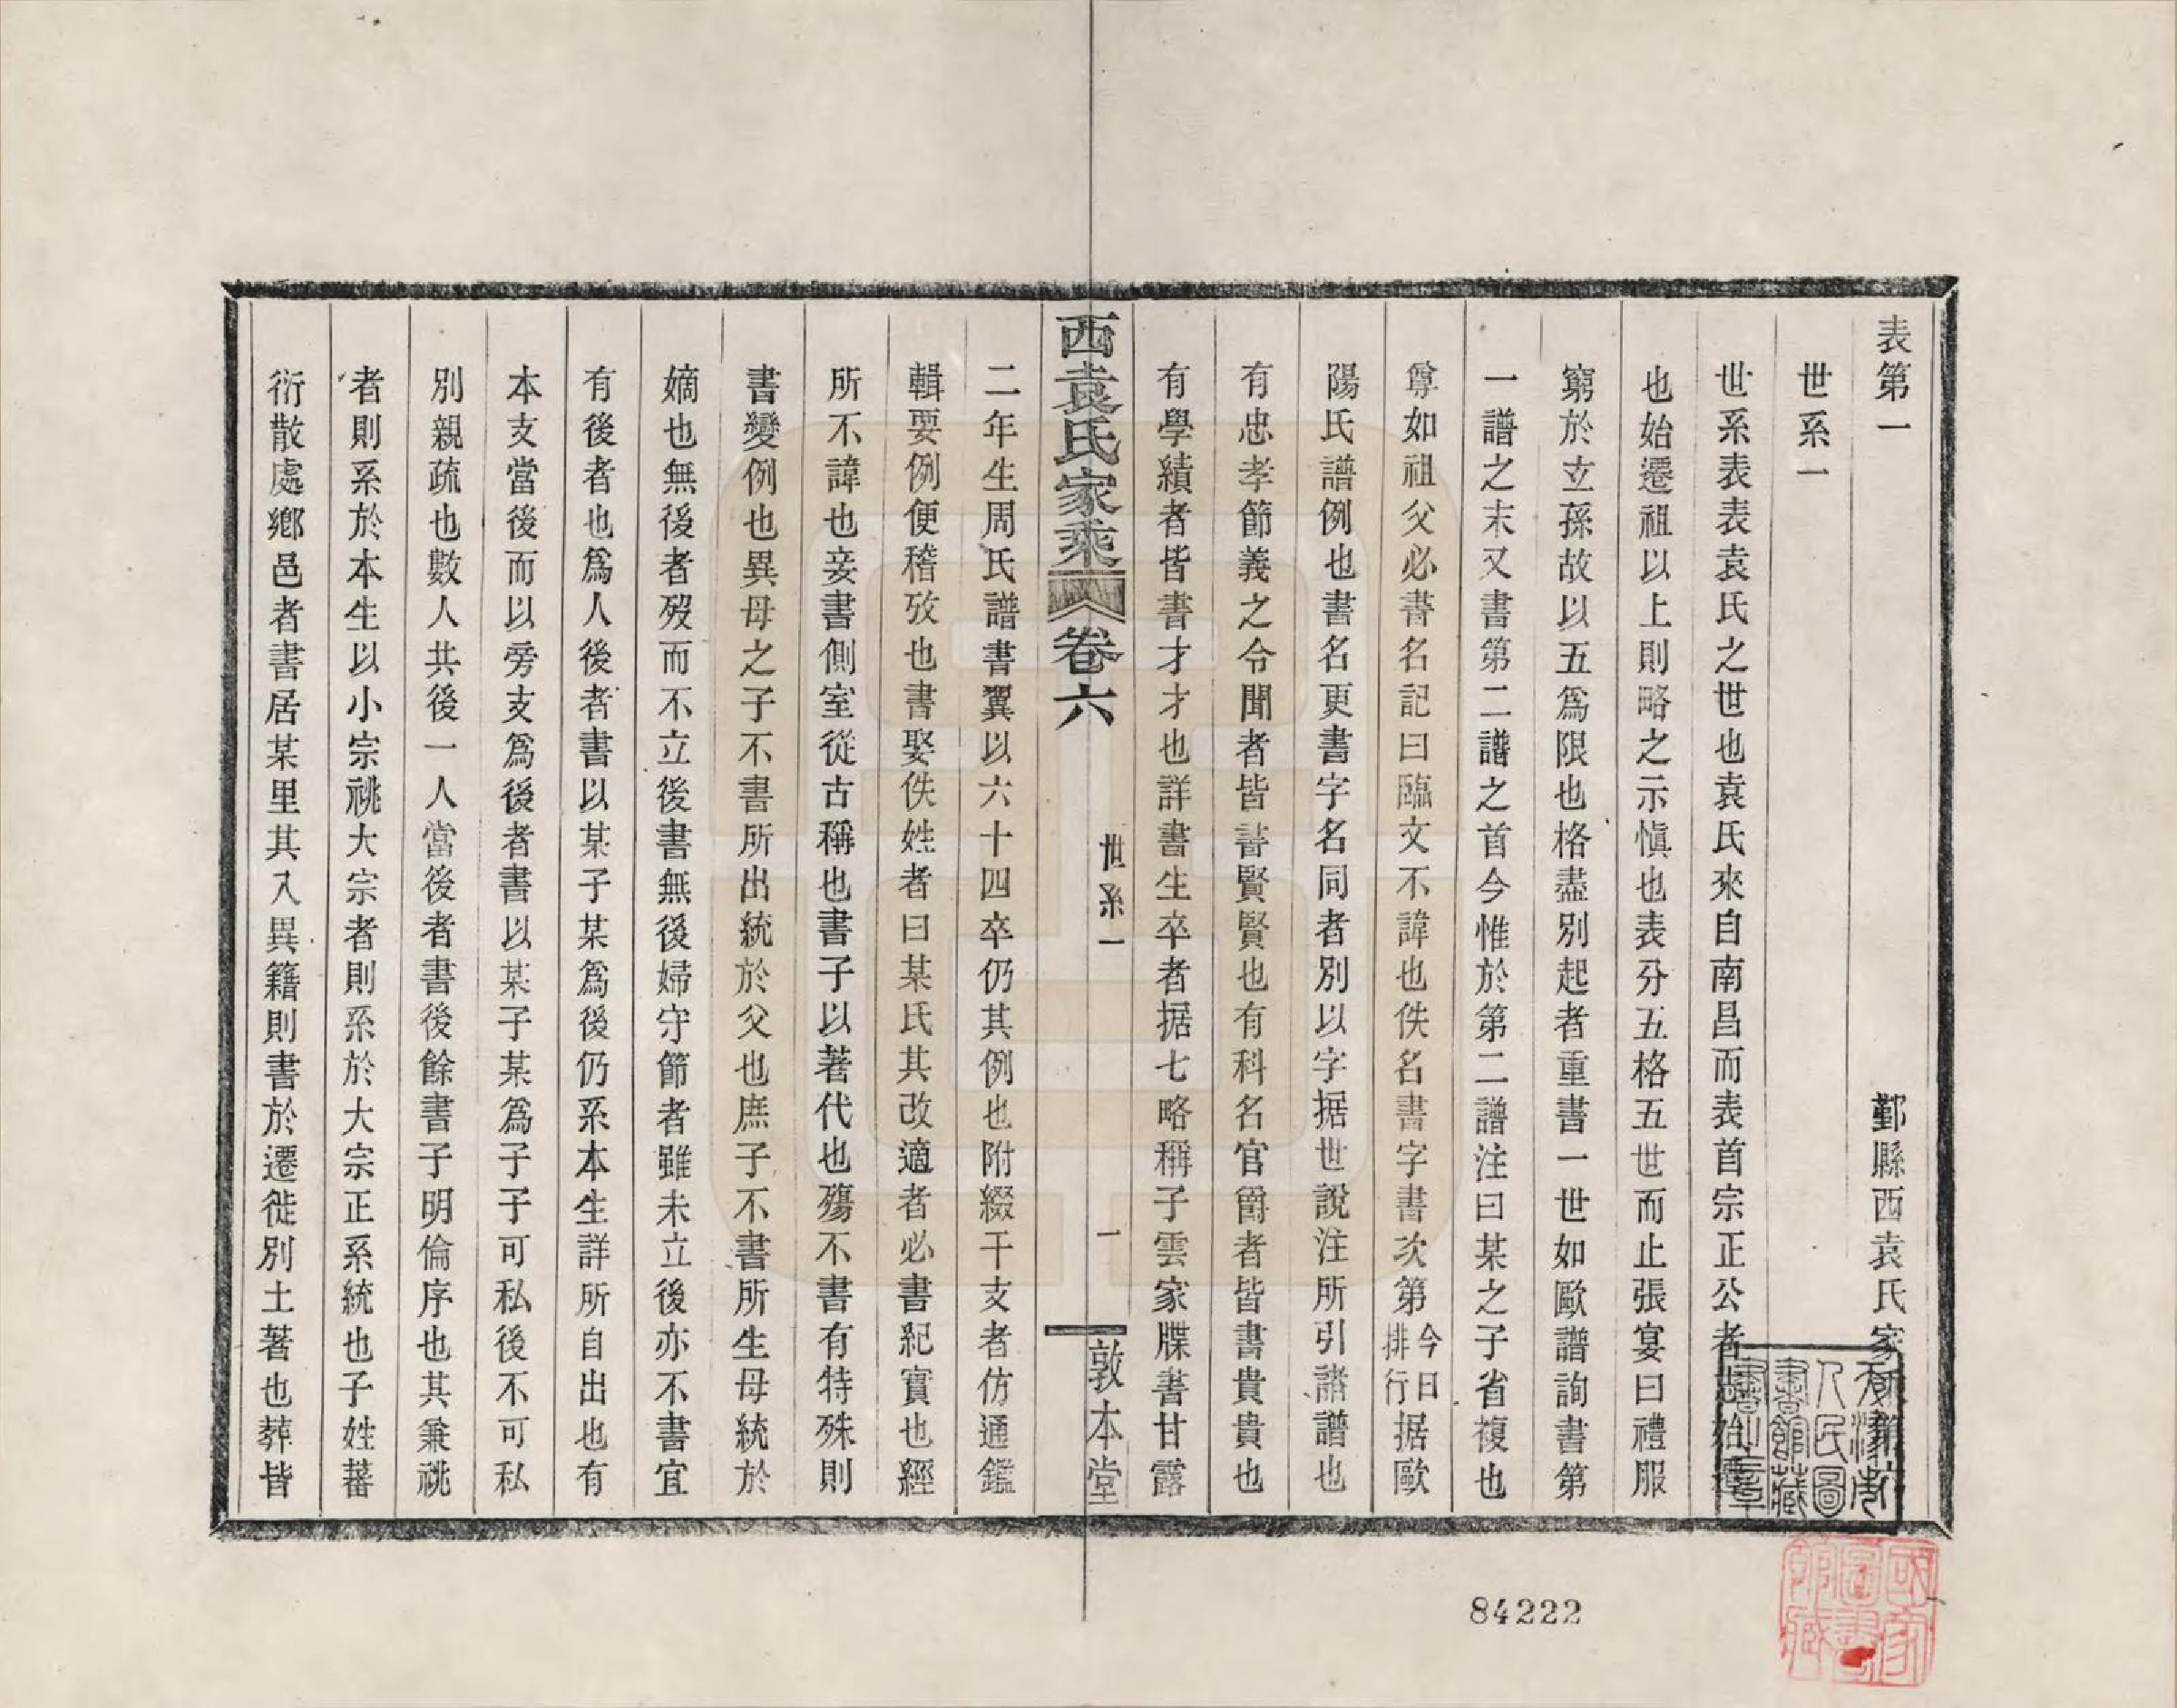 表第一
鄞縣西袁氏家乘
世系一
世系表表袁氏之世也袁氏來自南昌而表首宗正公者始遷
也始遷祖以上則略之示愼也表分五格五世而止張宴曰禮服
窮於玄孫故以五爲限也格盡別起者重書一世如歐譜詢書第
一譜之末又書第二譜之首今惟於第二譜注曰某之子省複也
尊如祖父必書名記曰臨文不諱也佚名書字書次第今日排行据歐
陽氏譜例也書名更書字名同者別以字据世說注所引諸譜也
有忠孝節義之令聞者皆書賢賢也有科名官爵者皆書貴貴也
有學績者皆書才才也詳書生卒者据七略稱子雲家牒書甘露
西袁氏家乘
卷六
世系一
一
敦本堂
二年生周氏譜書翼以六十四卒仍其例也附綴干支者仿通鑑
輯要例便稽攷也書娶佚姓者曰某氏其改適者必書紀實也經
所不諱也妾書側室從古稱也書子以著代也殤不書有特殊則
書變例也異母之子不書所出統於父也庶子不書所生母統於
嫡也無後者歿而不立後書無後婦守節者雖未立後亦不書宜
有後者也爲人後者書以某子某爲後仍系本生詳所自出也有
本支當後而以旁支爲後者書以某子某爲子子可私後不可私
別親疏也數人共後一人當後者書後餘書子明倫序也其兼祧
者則系於本生以小宗祧大宗者則系於大宗正系統也子姓蕃
衍散處鄉邑者書居某里其入異籍則書於遷徙別土著也葬皆
天津市人民圖書館藏書之章
84222
國家圖書館藏